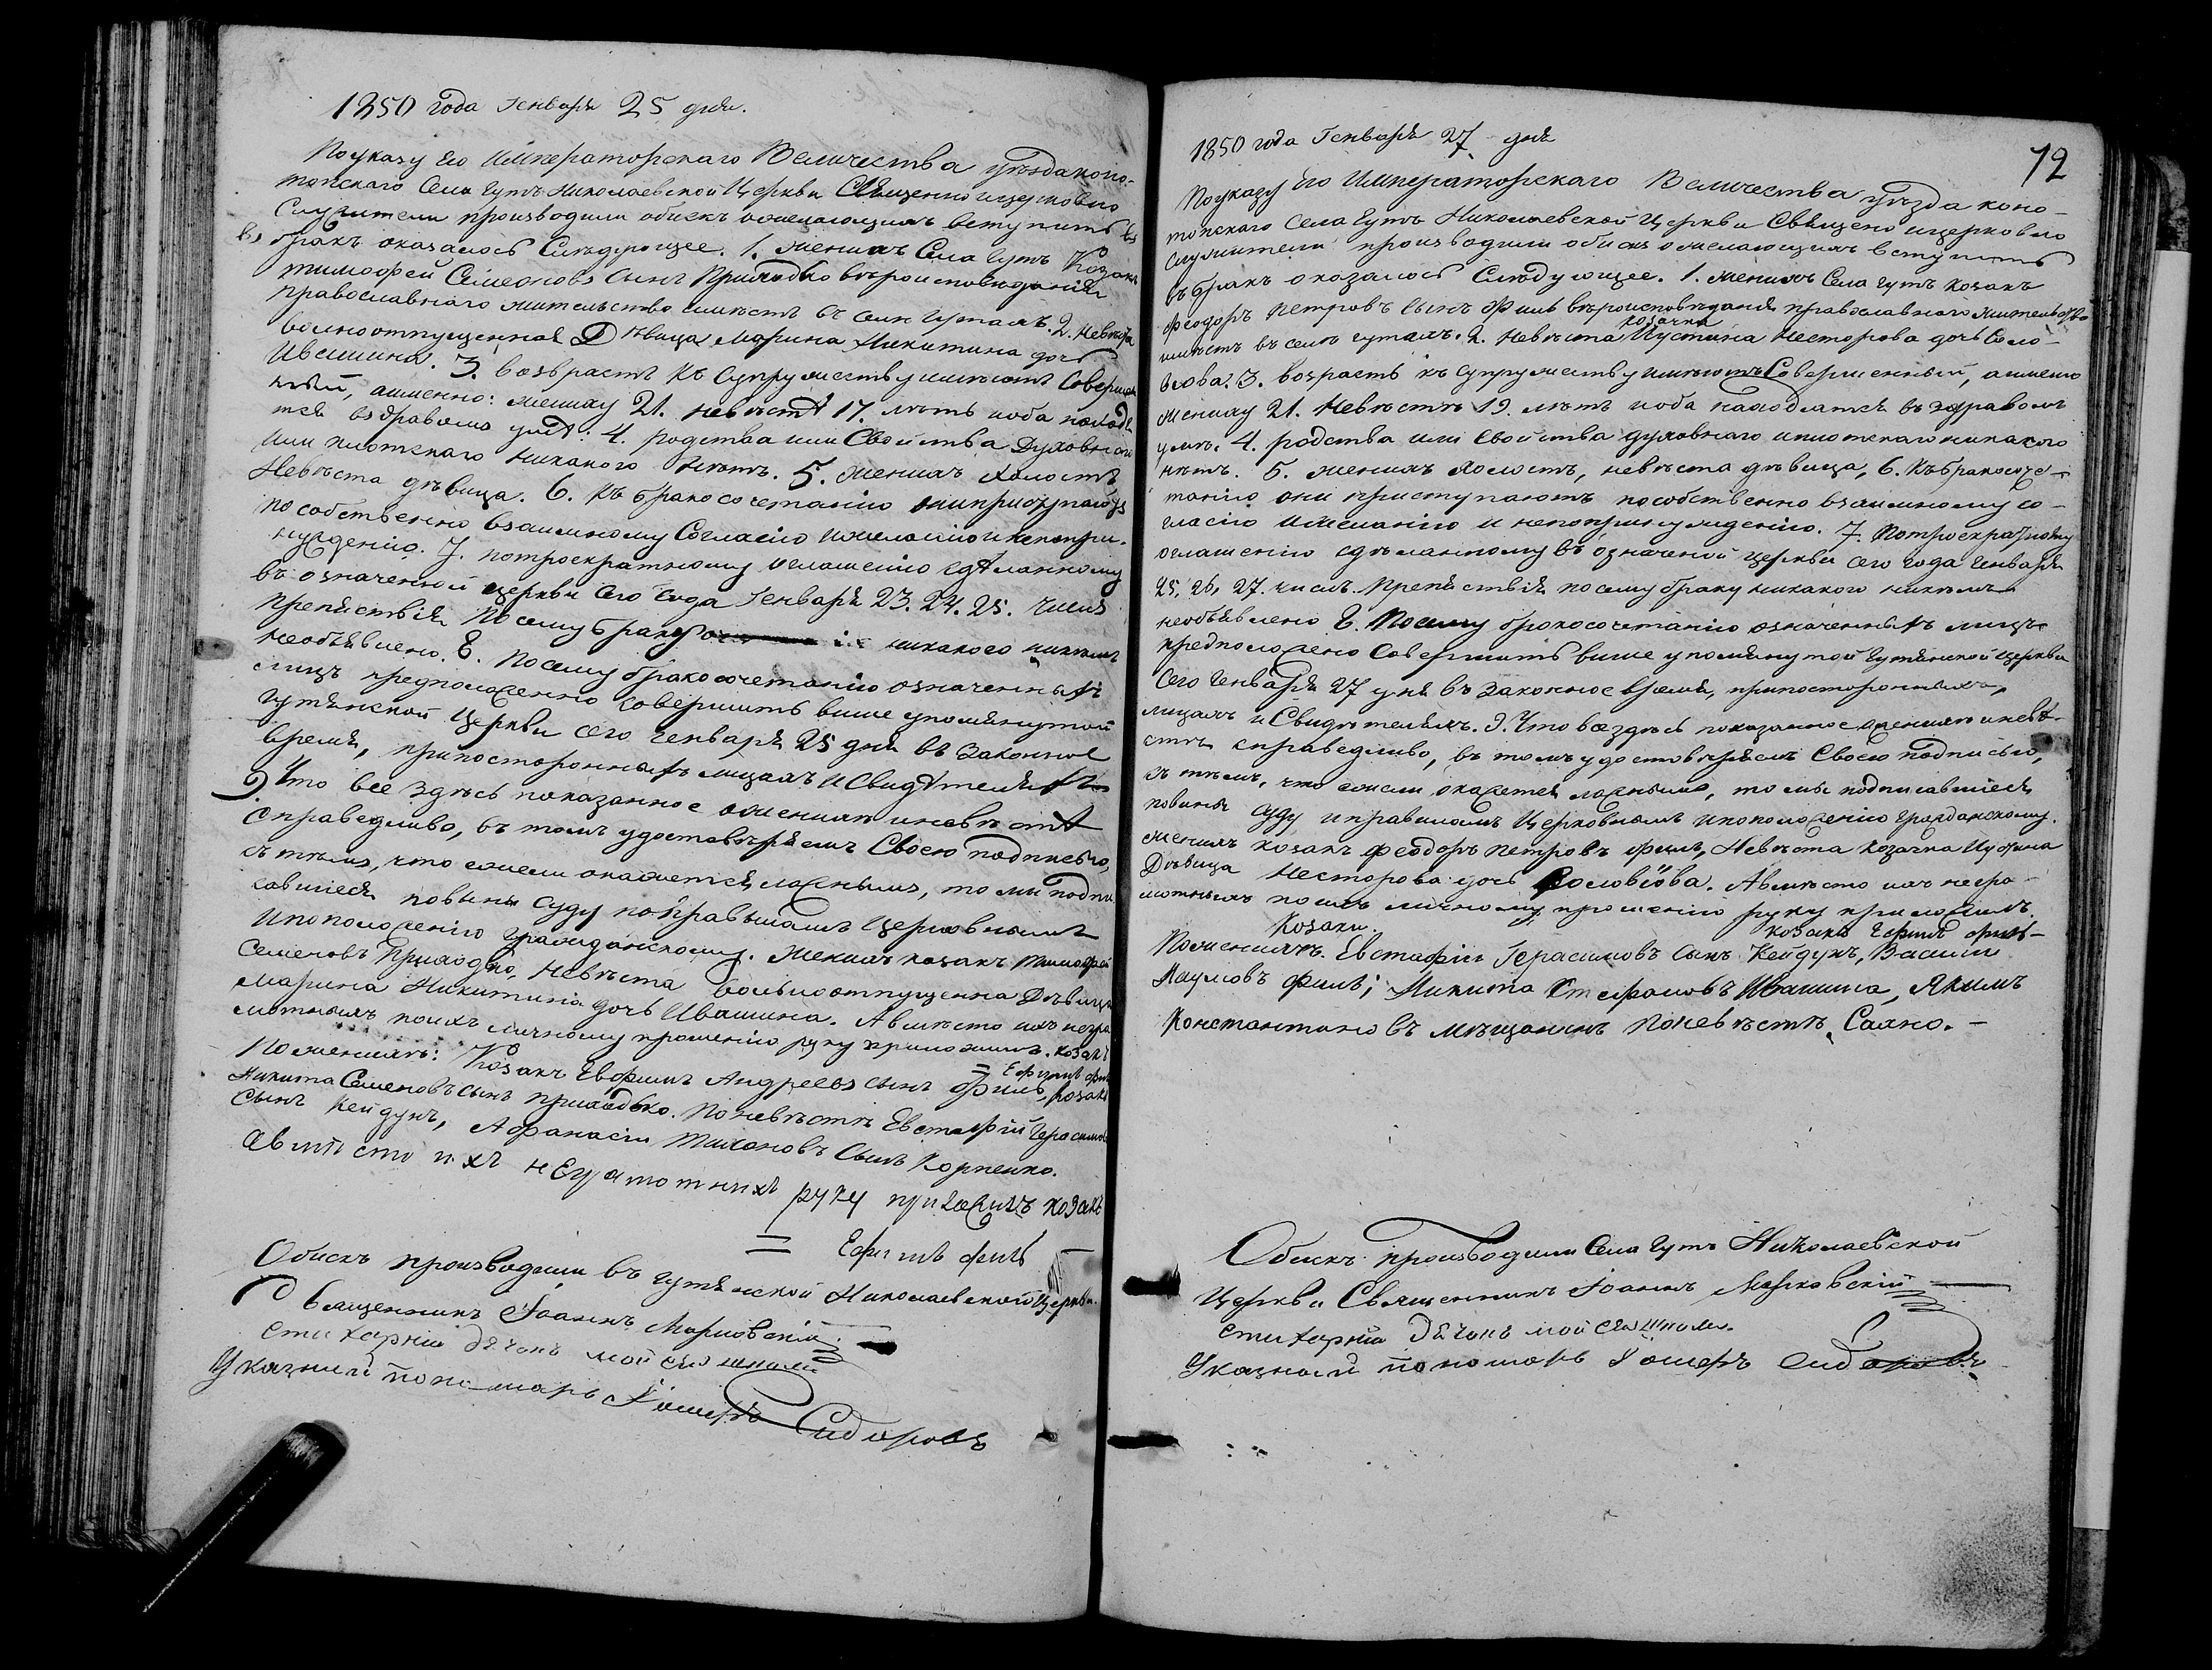 1850 года Генваря 25 дня.
По указу Его Императорскаго Величества уѣзда коно-
топскаго Села Гутъ Николаевской Церкви Священно ицерковно
служители производили обискъ ожелающихъ вступить въ
бракъ оказалось Слѣдующее. 1. женихъ Села Гутъ Козакъ
тимофей Семеоновъ Сынъ Приходько вѣроисповѣданія
православнаго жительство имѣетъ въ селѣ Гутахъ. 2. Невѣста
волноотпущенная Дѣвица Марина Никитина дочь
Ивашина. 3. возврастъ къ Супружеству имѣютъ Соверше
ный, аименно: жениху 21. невѣстѣ 17. лѣтъ иоба находя
тся вздравомъ умѣ: 4. родства или Свойства Духовнаго
или плотскаго никакого нѣтъ. 5. женихъ холостъ,
Невѣста дѣвица. 6. Къ бракосочетанію они приступаютъ
по собственно взаимному Согласію ижеланію и непопри-
нужденію. 7. потроекратному оглашенію сдѣланному
въ означенной церкви Сего Года Генваря 23. 24. 25. чиселъ
препятствія Посему браку никакого никѣмъ
необъявлено. 8. Посему бракосочетанію означенныхъ
лицъ предположено Совершить више упомянутой
Гутянской Церкви сего Генваря 25 дня въ Законное
время, припостороннихъ лицахъ иСвидѣтеляхъ
9. Что все здѣсь показанное оженихѣ иневѣстѣ
справедливо, въ томъ удостовѣряемъ Своею подписью,
съ тѣмъ, что ежели окажется ложнымъ, то ми подпи
савшіеся повыны Суду поправыламъ Церковнымъ
ипоположенію гражданскому. Женихъ козакъ Тимофей
Семеновъ Приходько, Невѣста вольноотпущенна Дѣвица
Марина Никитина дочь Ивашина. Авмѣсто ихъ негра
мотныхъ поихъ личному прошенію руку приложилъ. козакъ
= Ефимъ филь
По женихѣ: Козакъ Евфимъ Андреевъ сынъ Филь, козакъ
Никита Семеновъ сынъ приходько. По невѣстѣ Евстафій Герасимовъ
Сынъ Кейдунъ, Афанасій Тихоновъ Сынъ Корпенко.
авмѣсто ихъ неграмотнихъ руку приложилъ козакъ
= Ефимъ филь —
Обискъ производили въ гутянской Николаевской Церкви.
Священникъ Іоаннъ Марковскій
стихарній дячокъ
Указный пономарь Сидоровъ
1850 года Генваря 27 дня
72
По указу Его Императорскаго Величества уѣзда коно-
топскаго Села Гутъ Николаевской Церкви Священо ицерковно
служители производили обискъ ожелающихъ вступить
въ бракъ оказалось Слѣдующее. 1. женихъ Села Гутъ козакъ
Феодоръ Петровъ Сынъ Филь вѣроисповѣданія православнаго жительство
козачка
имѣетъ въ селѣ гутахъ. 2. Невѣста Иустина Несторова дочь Соло-
вьова. 3. возрастъ къ супружеству имѣютъ Совершенный, аименно
жениху 21. Невѣстѣ 19. лѣтъ иоба находятся въ здравомъ
умѣ. 4. родства или Свойства духовнаго иплотскаго никакого
нѣтъ. 5. женихъ холостъ, невѣста дѣвица, 6. Къ бракосоче-
танію они приступаютъ пособственно взаимному со-
гласію ижеланію и непопринужденію. 7. Потроекратному
оглашенію сдѣланному въ означеной церкви сего года Генваря
25, 26, 27. чиселъ. Препятствія посему браку никакого никѣмъ
необъявлено 8. Посему бракосочетанію означенныхъ лицъ
предположено Совершить више упомянутой Гутянской церкви
Сего Генваря 27 дня въ Законное время, припостороннихъ,
лицахъ иСвидѣтеляхъ. 9. Что все здѣсь показанное оженихѣ иневѣ-
стѣ справедливо, въ томъ удостовѣряемъ Своею подписью,
съ тѣмъ, что ежели окажется ложнымъ, то мы подписавшіеся
повины суду иправиламъ Церковнымъ ипоположенію гражданскому.
Женихъ козакъ Феодоръ Петровъ Филь, Невѣста козачка Иустина
Дѣвица Несторова дочь Соловіова. Авмѣсто ихъ негра-
мотныхъ поихъ личному прошенію руку приложилъ.
Козаки. козакъ Ефимъ филь —
Поженихѣ. Евстафій Герасимовъ сынъ Кейдунъ, Василій
Наумовъ филь; Никита Стефановъ Ивашина, Якимъ
Константиновъ мѣщанинъ Поневѣстѣ, Саяно. —
Обискъ производили Села Гутъ Николаевской
Церкви Священникъ Іоаннъ Марковскій
стихарній дячокъ
Указный пономарь Сидоровъ